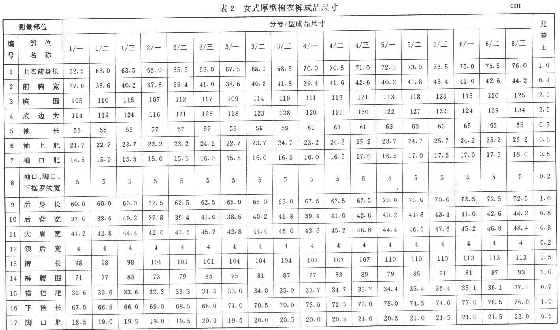 表 2 女式厚型棉衣裤成品尺寸 cm
测量部位 分号/型成品尺寸 差±
编号 部位名称 1/一 1/二 1/三 2/一 2/二 2/三 3/一 3/二 3/三 4/一 4/二 4/三 5/一 5/二 5/三 6/一 6/二 6/三
1 上衣前身长 62.5 63.0 63.5 65.0 65.5 66.0 67.5 68.0 68.5 70.0 70.5 71.0 72.5 73.0 73.5 75.0 75.5 76.0 1.0
2 前胸宽 37.0 38.6 40.2 37.8 39.4 41.0 38.6 40.2 41.8 39.4 41.0 42.6 40.2 41.8 43.4 41.0 42.6 44.2 0.8
3 胸围 105 110 115 107 112 117 109 114 119 111 116 121 113 118 123 115 120 125 2.0
4 底边大 114 119 124 116 121 126 118 123 128 120 125 130 122 127 132 124 129 134 2.0
5 袖长 55 55 55 57 57 57 59 59 59 61 61 61 63 63 63 65 65 65 0.8
6 袖上肥 21.7 22.7 23.7 22.2 23.2 24.2 22.7 23.7 24.7 23.2 24.2 25.2 23.7 24.7 25.7 24.2 25.2 26.2 0.5
7 袖口肥 14.5 15.0 15.5 15.0 15.5 16.0 15.5 16.0 16.5 16.0 16.5 17.0 16.5 17.0 17.5 17.0 17.5 18.0 0.5
8 袖口、脚口、下摆罗纹宽 5 5 5 5 5 5 5 5 5 5 5 5 5 5 5 5 5 5 0.2
9 后身长 60.0 60.0 60.0 62.5 62.5 62.5 65.0 65.0 65.0 67.5 67.5 67.5 70.0 70.0 70.0 72.5 72.5 72.5 1.0
10 后背宽 37.0 38.6 40.2 37.8 39.4 41.0 38.6 40.2 41.8 39.4 41.0 42.6 40.2 41.8 43.4 41.0 42.6 44.2 0.8
11 大肩宽 41.2 42.8 44.4 42.0 43.6 45.2 42.8 44.4 46.0 43.6 45.2 46.8 44.4 46.0 47.6 45.2 46.8 48.4 0.8
12 领后宽 4 4 4 4 4 4 4 4 4 4 4 4 4 4 4 4 4 4 0.2
13 裤长 98 98 98 101 101 101 104 104 104 107 107 107 110 110 110 113 113 113 1.5
14 裤腰围 71 77 83 73 79 85 75 81 87 77 83 89 79 85 91 81 87 93 2.0
15 横裆肥 31.6 32.6 33.6 32.3 33.3 34.3 33.0 34.0 35.0 33.7 34.7 35.7 34.4 35.4 36.4 35.1 36.1 37.1 0.7
16 下裆长 67.0 66.5 66.0 69.0 68.5 68.0 71.0 70.5 70.0 73.0 72.5 72.0 75.0 74.5 74.0 77.0 76.5 76.0 1.0
17 脚口肥 18.5 19.0 19.5 19.0 19.5 20.0 19.5 20.0 20.5 20.0 20.5 21.0 20.5 21.0 21.5 21.0 21.5 22.0 0.5